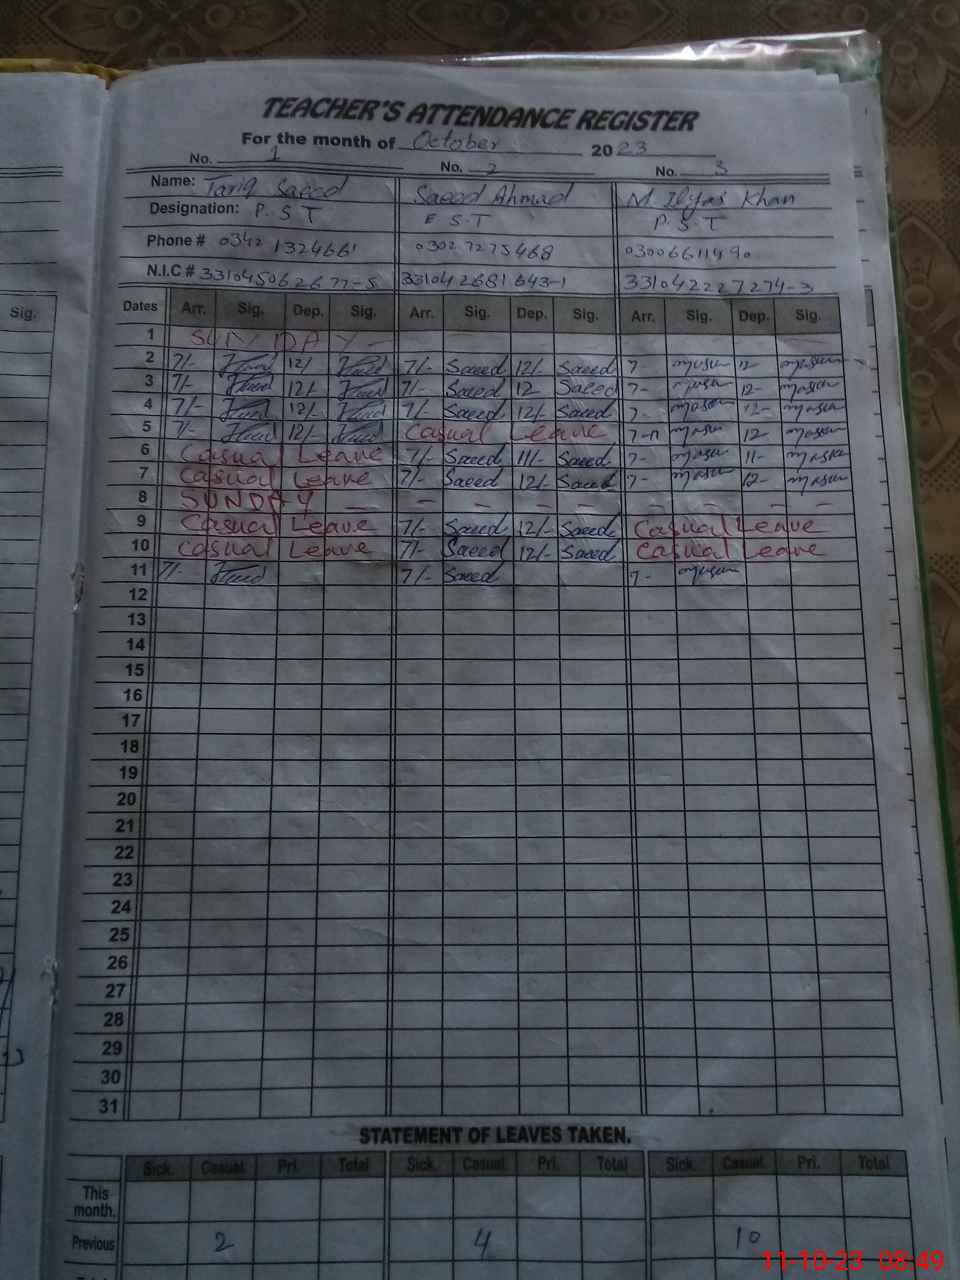 TEACHER'S ATTENDANCE REGISTER
For the month of October 2023
No. 1 No. 2 No. 3
Name: Tariq Saeed Saeed Ahmad M. Ilyas Khan
Designation: P.S.T E S.T P.S.T
Phone # 0342 1324661 0302 7275468 03006611490
N.I.C # 331045062677-5 331042681643-1 331042227274-3
Sig. Dates Arr. Sig. Dep. Sig. Arr. Sig. Dep. Sig. Arr. Sig. Dep. Sig.
1 SUNDAY
2 7/- 12/ 7/- Saeed 12/- Saeed 7- 12-
3 7/- 12/- 7/- Saeed 12 Saeed 7- 12-
4 7/- 12/- 7/- Saeed 12/- Saeed 7- 12-
5 7/- 12/- Casual Leave 12-
6 Casual Leave 7/- Saeed 11/- Saeed 7- 11-
7 Casual Leave 7/- Saeed 12/- Saeed 7- 12-
8 SUNDAY - - - - - - - - - -
9 Casual Leave 7/- Saeed 12/- Saeed Casual Leave
10 Casual Leave 7/- Saeed 12/- Saeed Casual Leave
11 7/- 7/- Saeed 7-
12
13
14
15
16
17
18
19
20
21
22
23
24
25
26
27
28
29
30
31
STATEMENT OF LEAVES TAKEN.
Sick. Casual. Pri. Total Sick. Casual. Pri. Total Sick. Casual. Pri. Total
This month.
Previous 2 4 10
11-10-23 08:49